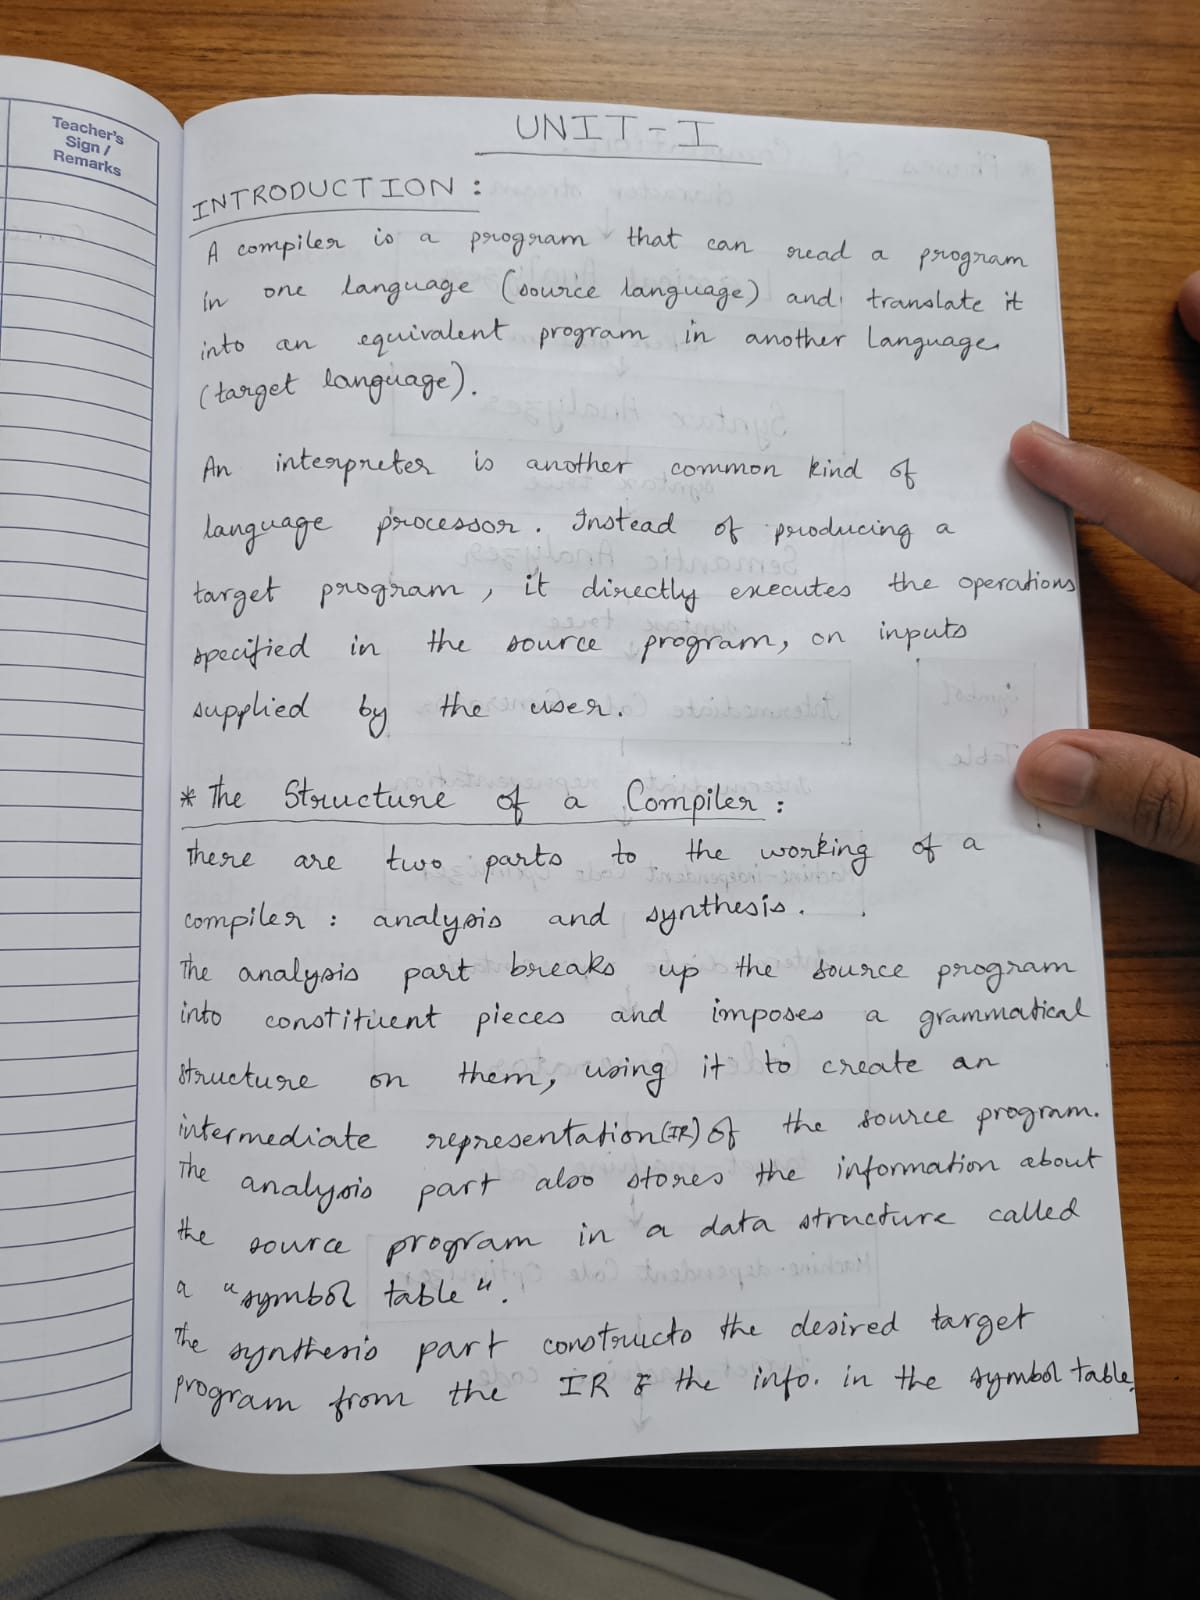 Teacher's
Sign /
Remarks
UNIT-I
INTRODUCTION :
A compiler is a program that can read a program
in one language (source language) and translate it
into an equivalent program in another language
(target language).
An interpreter is another common kind of
language processor. Instead of producing a
target program, it directly executes the operations
specified in the source program, on inputs
supplied by the user.
* The Structure of a Compiler :
There are two parts to the working of a
compiler : analysis and synthesis.
The analysis part breaks up the source program
into constituent pieces and imposes a grammatical
structure on them, using it to create an
intermediate representation(IR) of the source program.
The analysis part also stores the information about
the source program in a data structure called
a "symbol table".
The synthesis part constructs the desired target
program from the IR & the info. in the symbol table.